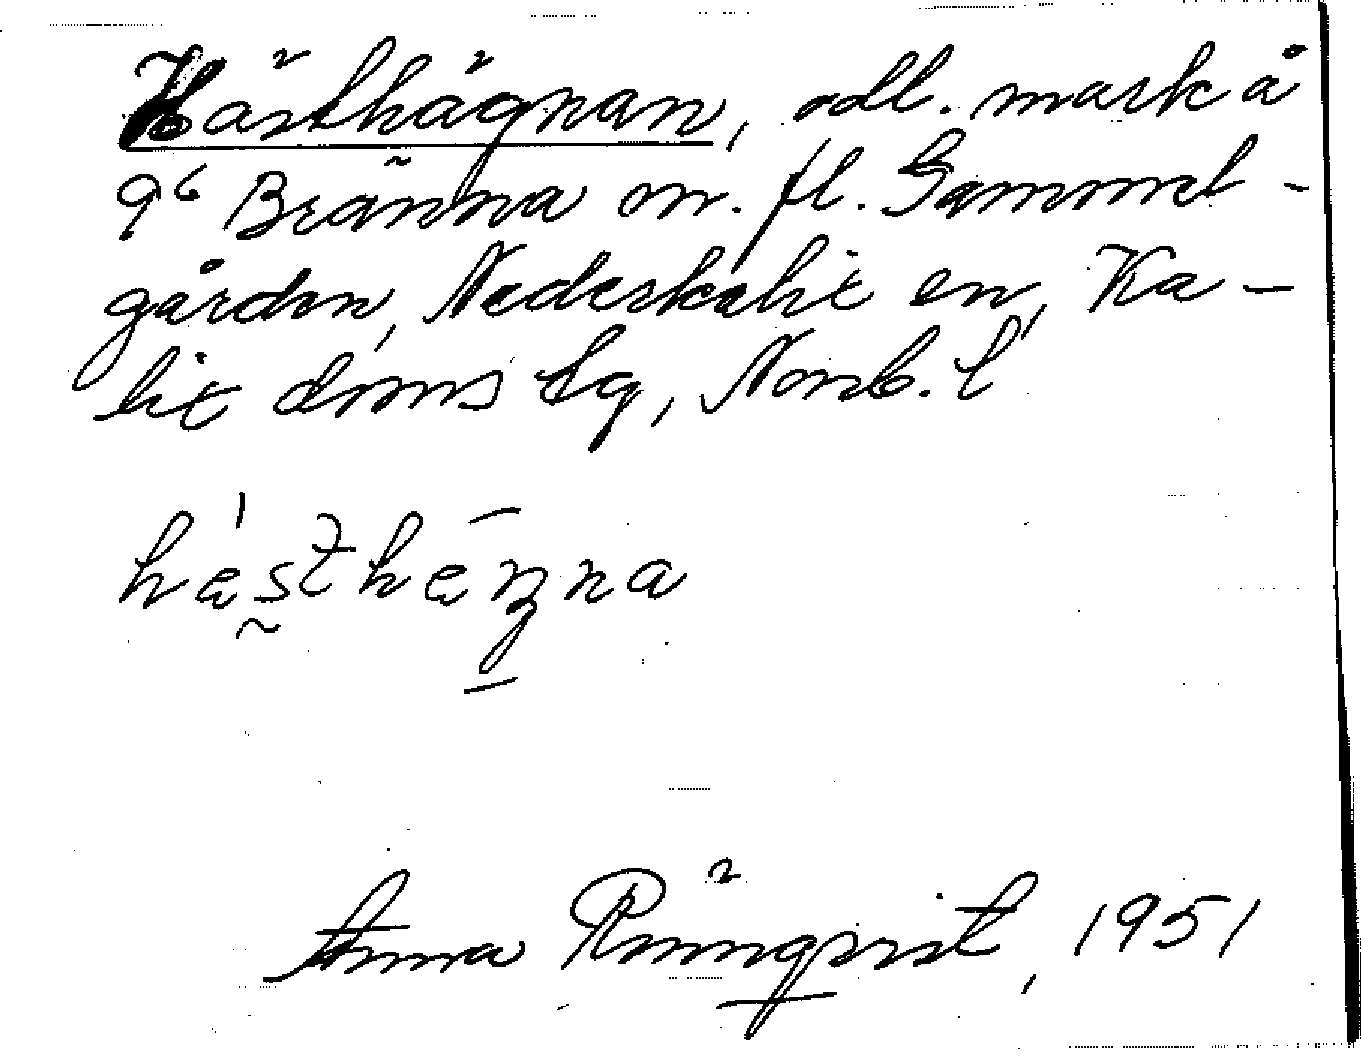 Hästhägnan, odl. mark å
9⁶ Bränna m. fl. Gammel-
gården, Nederkalix sn, Ka-
lix doms lg, Norrb. l
hästhägna
Anna Rönnqvist, 1951